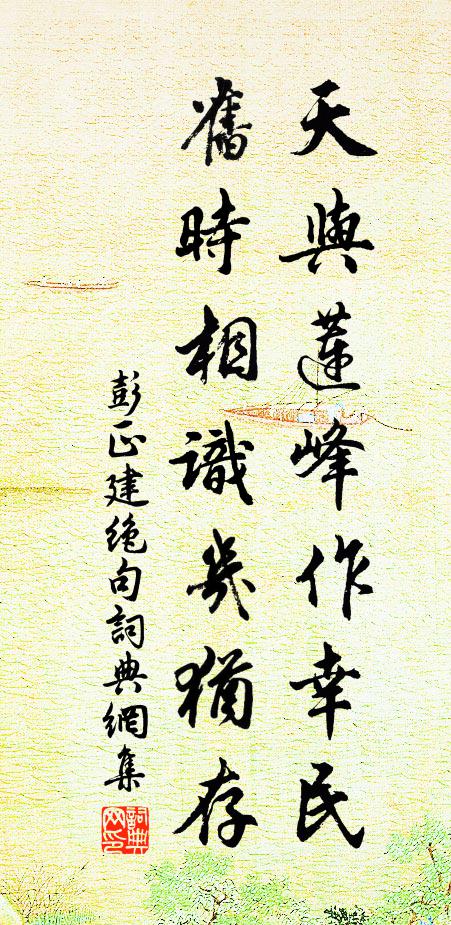 天與蓮峰作幸民
舊時相識幾猶存
彭正建绝句詞典網集
詞典
网印